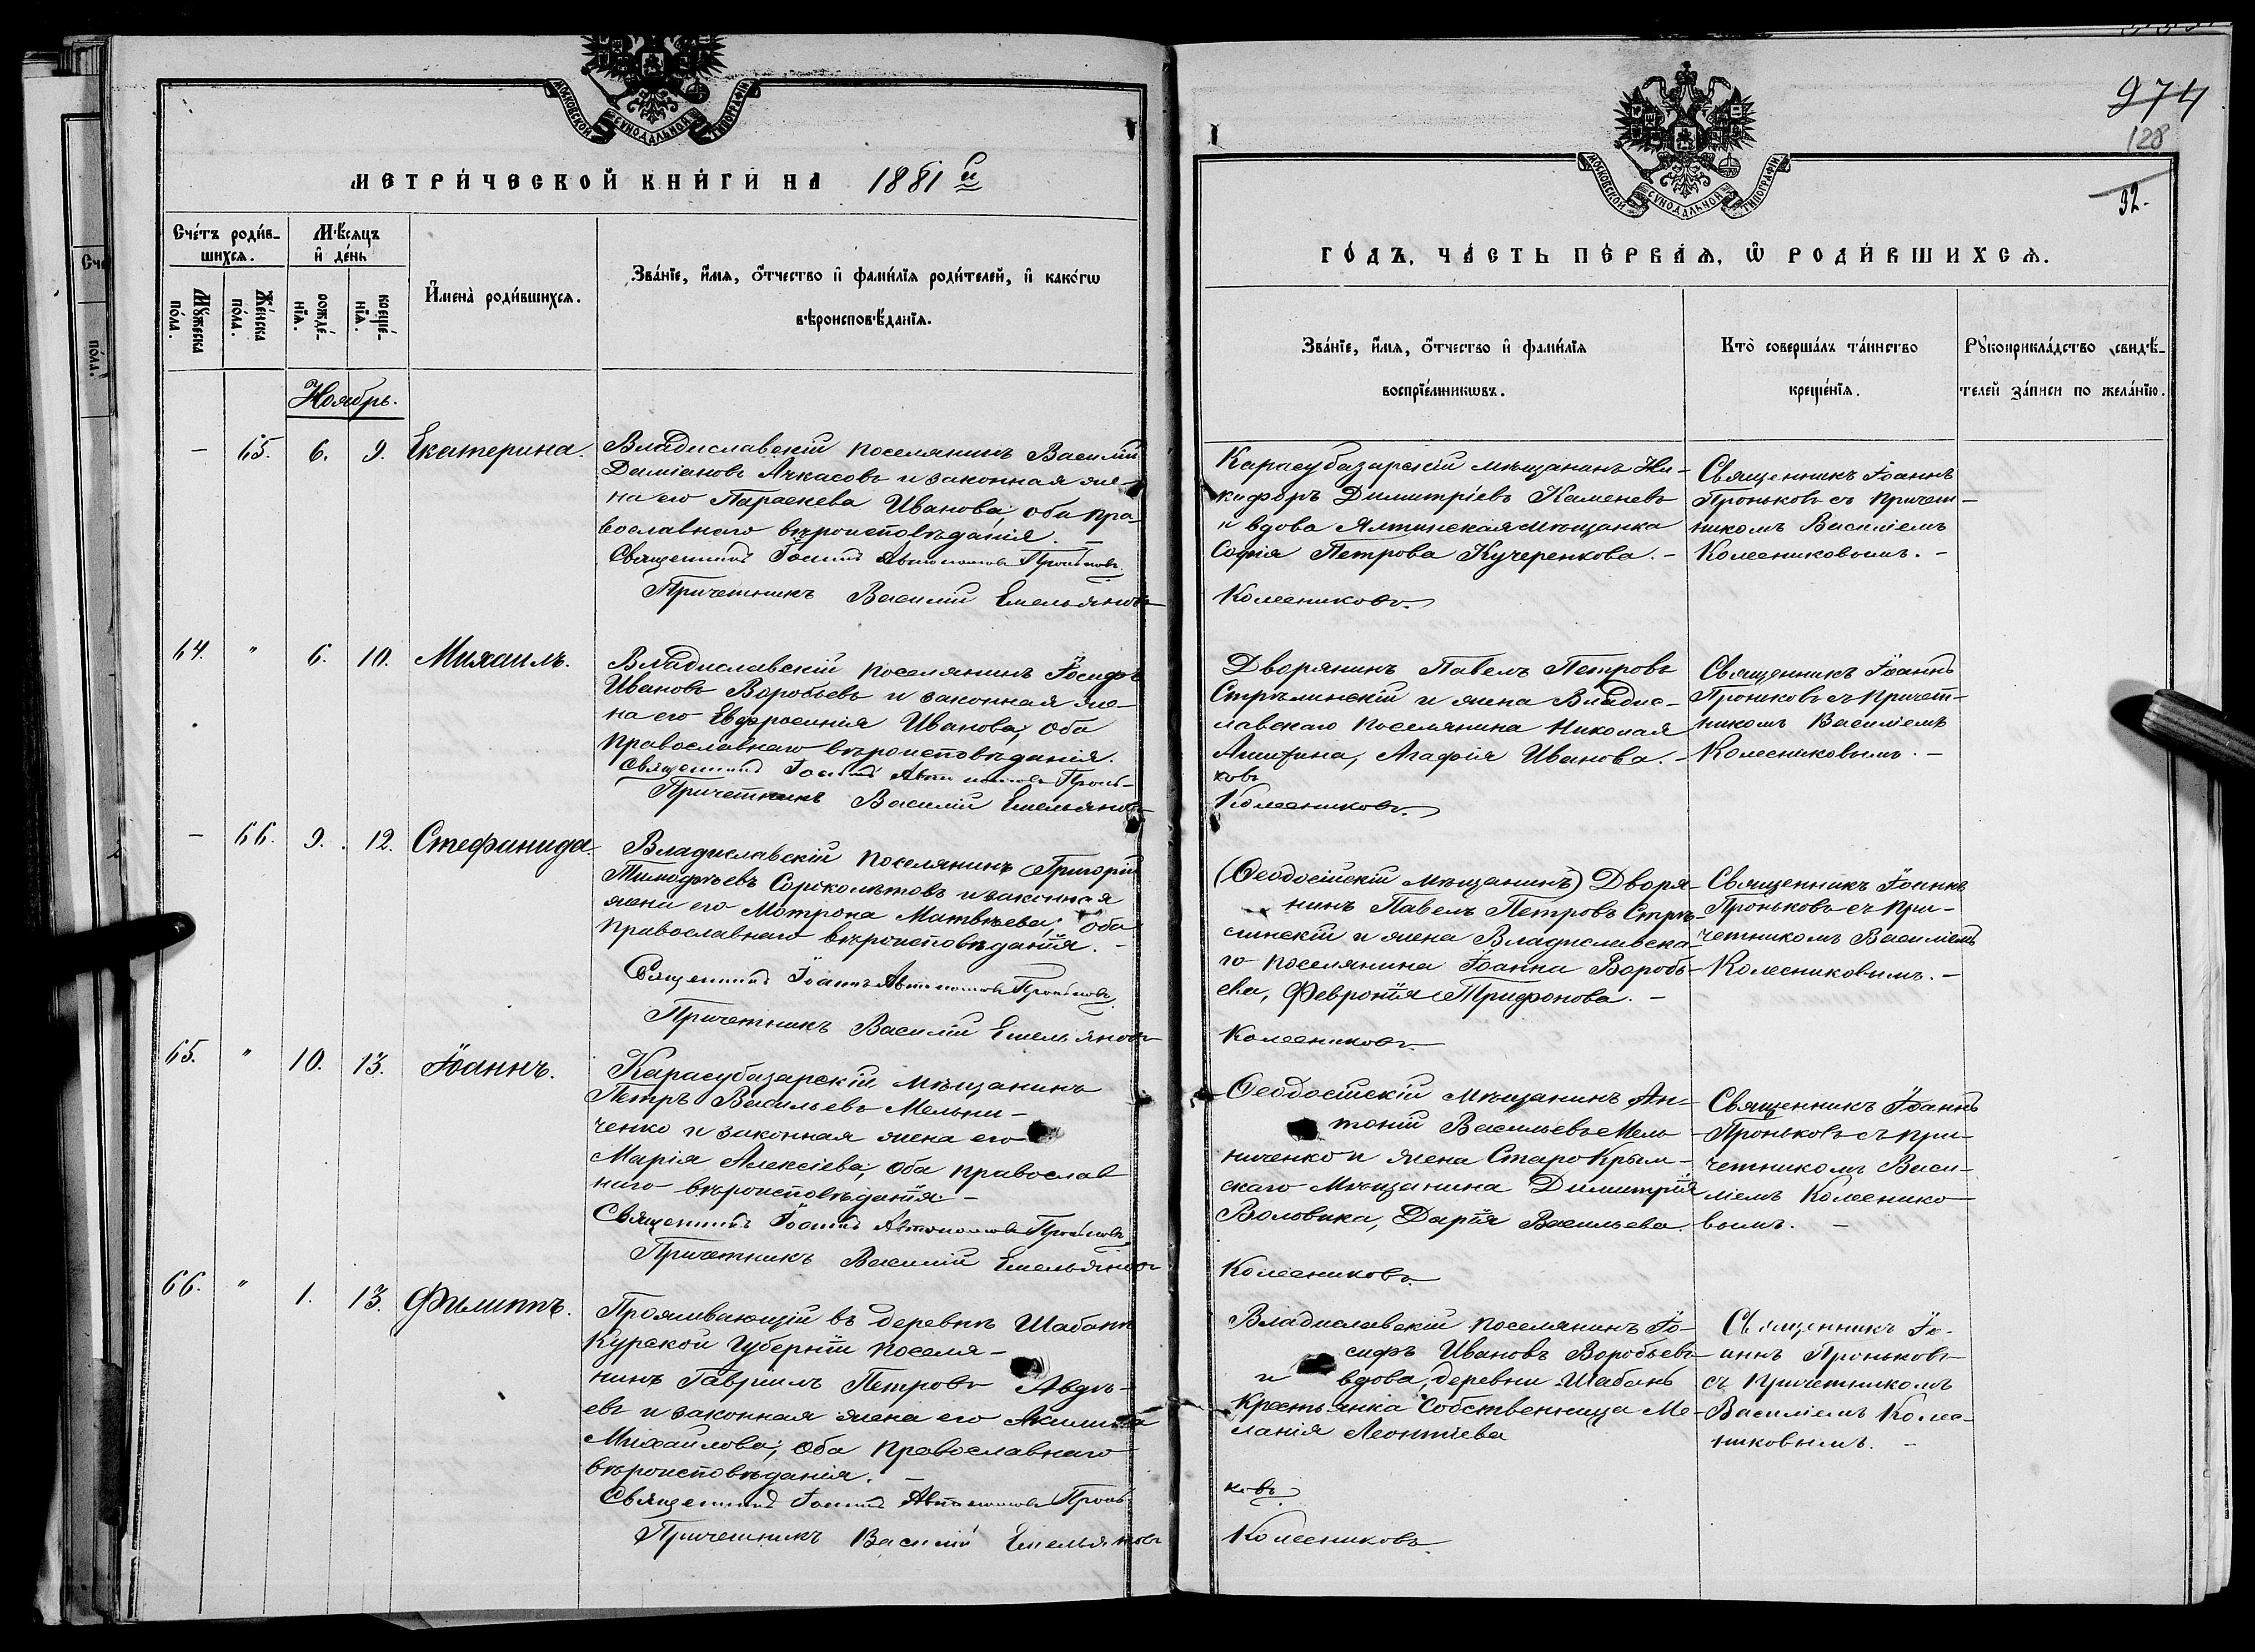 МОСКОВСКОЙ СУНОДАЛЬНОЙ ТИПОГРАФІИ
МЕТРИ́ЧЕСКОЙ КНИ́ГИ НА 1881й
Сче́тъ роди́в-
шихсѧ.
Мѣ́сѧцъ
и҆ де́нь
Мꙋ́жеска
по́ла.
Же́нска
по́ла.
рожде́-
нїѧ.
креще́-
нїѧ.
И҆мена̀ роди́вшихсѧ.
Зва́нїе, и҆́мѧ, ѻ҆́тчество и҆ фами́лїѧ роди́телей, и҆ како́гѡ
вѣроисповѣ́данїѧ.
Ноябрь.
— 65. 6. 9. Екатерина.
Владиславскій поселянинъ Василій
Даміановъ Ачкасовъ и законная же-
на его Параскева Иванова, оба пра-
вославнаго вѣроисповѣданія. —
Священникъ Іоаннъ Автономовъ Проньковъ.
Причетникъ Василій Емельяновъ
64. " 6. 10. Михаилъ.
Владиславскій поселянинъ Іосифъ
Ивановъ Воробьевъ и законная же-
на его Евфросинія Иванова, оба
православнаго вѣроисповѣданія.
Священникъ Іоаннъ Автономовъ Понь-
Причетникъ Василій Емельяновъ
— 66. 9. 12. Стефанида.
Владиславскій поселянинъ Григорій
Тимофѣевъ Сороколѣтовъ и законная
жена его Матрона Матвѣева, оба
православнаго вѣроисповѣданія. —
Священникъ Іоаннъ Автономовъ Проньковъ.
Причетникъ Василій Емельяновъ
65. " 10. 13. Іоаннъ.
Карасубазарскій мѣщанинъ
Петръ Васильевъ Мельни-
ченко и законная жена его
Марія Алексіева, оба православ
наго вѣроисповѣданія. —
Священникъ Іоаннъ Автономовъ Проньковъ.
Причетникъ Василій Емельяновъ
66. " 1. 13. Филиппъ.
Проживающій въ деревнѣ Шабань
Курской губерніи поселя-
нинъ Гавріилъ Петровъ Авдѣ-
евъ и законная жена его Акилина
Михаилова, оба православнаго
вѣроисповѣданія. —
Священникъ Іоаннъ Автономовъ Пронь-
Причетникъ Василій Емельяновъ
974
128
32.
МОСКОВСКОЙ СУНОДАЛЬНОЙ ТИПОГРАФІИ
ГО́ДЪ, ЧА́СТЬ ПЕ́РВАѦ, Ѡ҆ РОДИ́ВШИХСѦ.
Зва́нїе, и҆́мѧ, ѻ҆́тчество и҆ фами́лїѧ
воспрїе́мникѡвъ.
Кто̀ соверша́лъ та́инство
креще́нїѧ.
Рꙋкоприкла́дство свидѣ́-
телей за́писи по жела́нїю.
Карасубазарскій мѣщанинъ Ни-
кифоръ Димитріевъ Каменевъ
и вдова Ялтинская мѣщанка
Софія Петрова Кучеренкова. —
Священникъ Іоаннъ
Проньковъ съ причет-
никомъ Василіемъ
Колесниковымъ. —
Колесниковъ.
Дворянинъ Павелъ Петровъ
Стрѣлинскій и жена Владис-
лавскаго поселянина Николая
Агафія Иванова. —
Священникъ Іоаннъ
Проньковъ съ причет-
никомъ Василіемъ
Колесниковымъ. —
ковъ
Колесниковъ.
(Ѳеодосійскій мѣщанинъ) Дворя-
нинъ Павелъ Петровъ Стрѣ-
линскій и жена Владиславска-
го поселянина Іоанна Воробь-
ева, Февронія Трифонова. —
Священникъ Іоаннъ
Проньковъ съ при-
четникомъ Василіемъ
Колесниковымъ. —
Колесниковъ.
Ѳеодосійскій мѣщанинъ Ан-
тоній Васильевъ Мель
ниченко и жена Старокрым-
скаго мѣщанина Димитрія
Воловика, Дарія Васильева.
Священникъ Іоаннъ
Проньковъ съ при-
четникомъ Васи-
ліемъ Колеснико
вымъ. —
Колесниковъ.
Владиславскій поселянинъ Іо-
сифъ Ивановъ Воробьевъ
и вдова, деревни Шабань
крестьянка собственница Ме-
ланія Леонтіева
Священникъ Іо-
аннъ Проньковъ
съ причетникомъ
Василіемъ Колес-
никовымъ. —
ковъ
Колесниковъ.